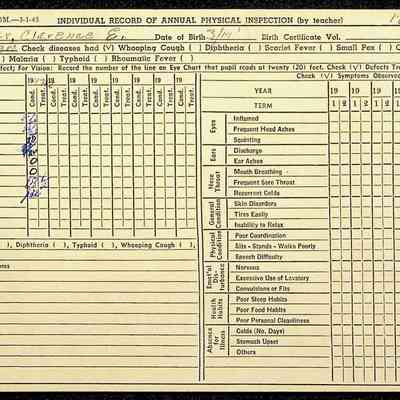 M.—3-1-45 INDIVIDUAL RECORD OF ANNUAL PHYSICAL INSPECTION (by teacher)
Clarence E. Date of Birth Birth Certificate Vol.
Check diseases had (√) Whooping Cough ( ) Diphtheria ( ) Scarlet Fever ( ) Small Pox (
) Malaria ( ) Typhoid ( ) Rheumatic Fever ( )
fect; For Vision: Record the number of the line on Eye Chart that pupil reads at twenty (20) feet. Check (√) Defects Tr
Check (√) Symptoms Observed
19 19 19 19 19 19
Cond. Treat. Cond. Treat. Cond. Treat. Cond. Treat. Cond. Treat. Cond. Treat.
YEAR 19 19 19 19
TERM 1 2 1 2 1 2 1
Eyes
Inflamed
Frequent Head Aches
Squinting
Ears
Discharge
Ear Aches
Nose Throat
Mouth Breathing
Frequent Sore Throat
Recurrent Colds
General Condition
Skin Disorders
Tires Easily
Inability to Relax
Physical Condition
Poor Coordination
Sits - Stands - Walks Poorly
Speech Difficulty
Emot'al Dis-turbance
Nervous
Excessive Use of Lavatory
Convulsions or Fits
Health Habits
Poor Sleep Habits
Poor Food Habits
Poor Personal Cleanliness
Absence for Illness
Colds (No. Days)
Stomach Upset
Others
), Diphtheria ( ), Typhoid ( ), Whooping Cough ( )